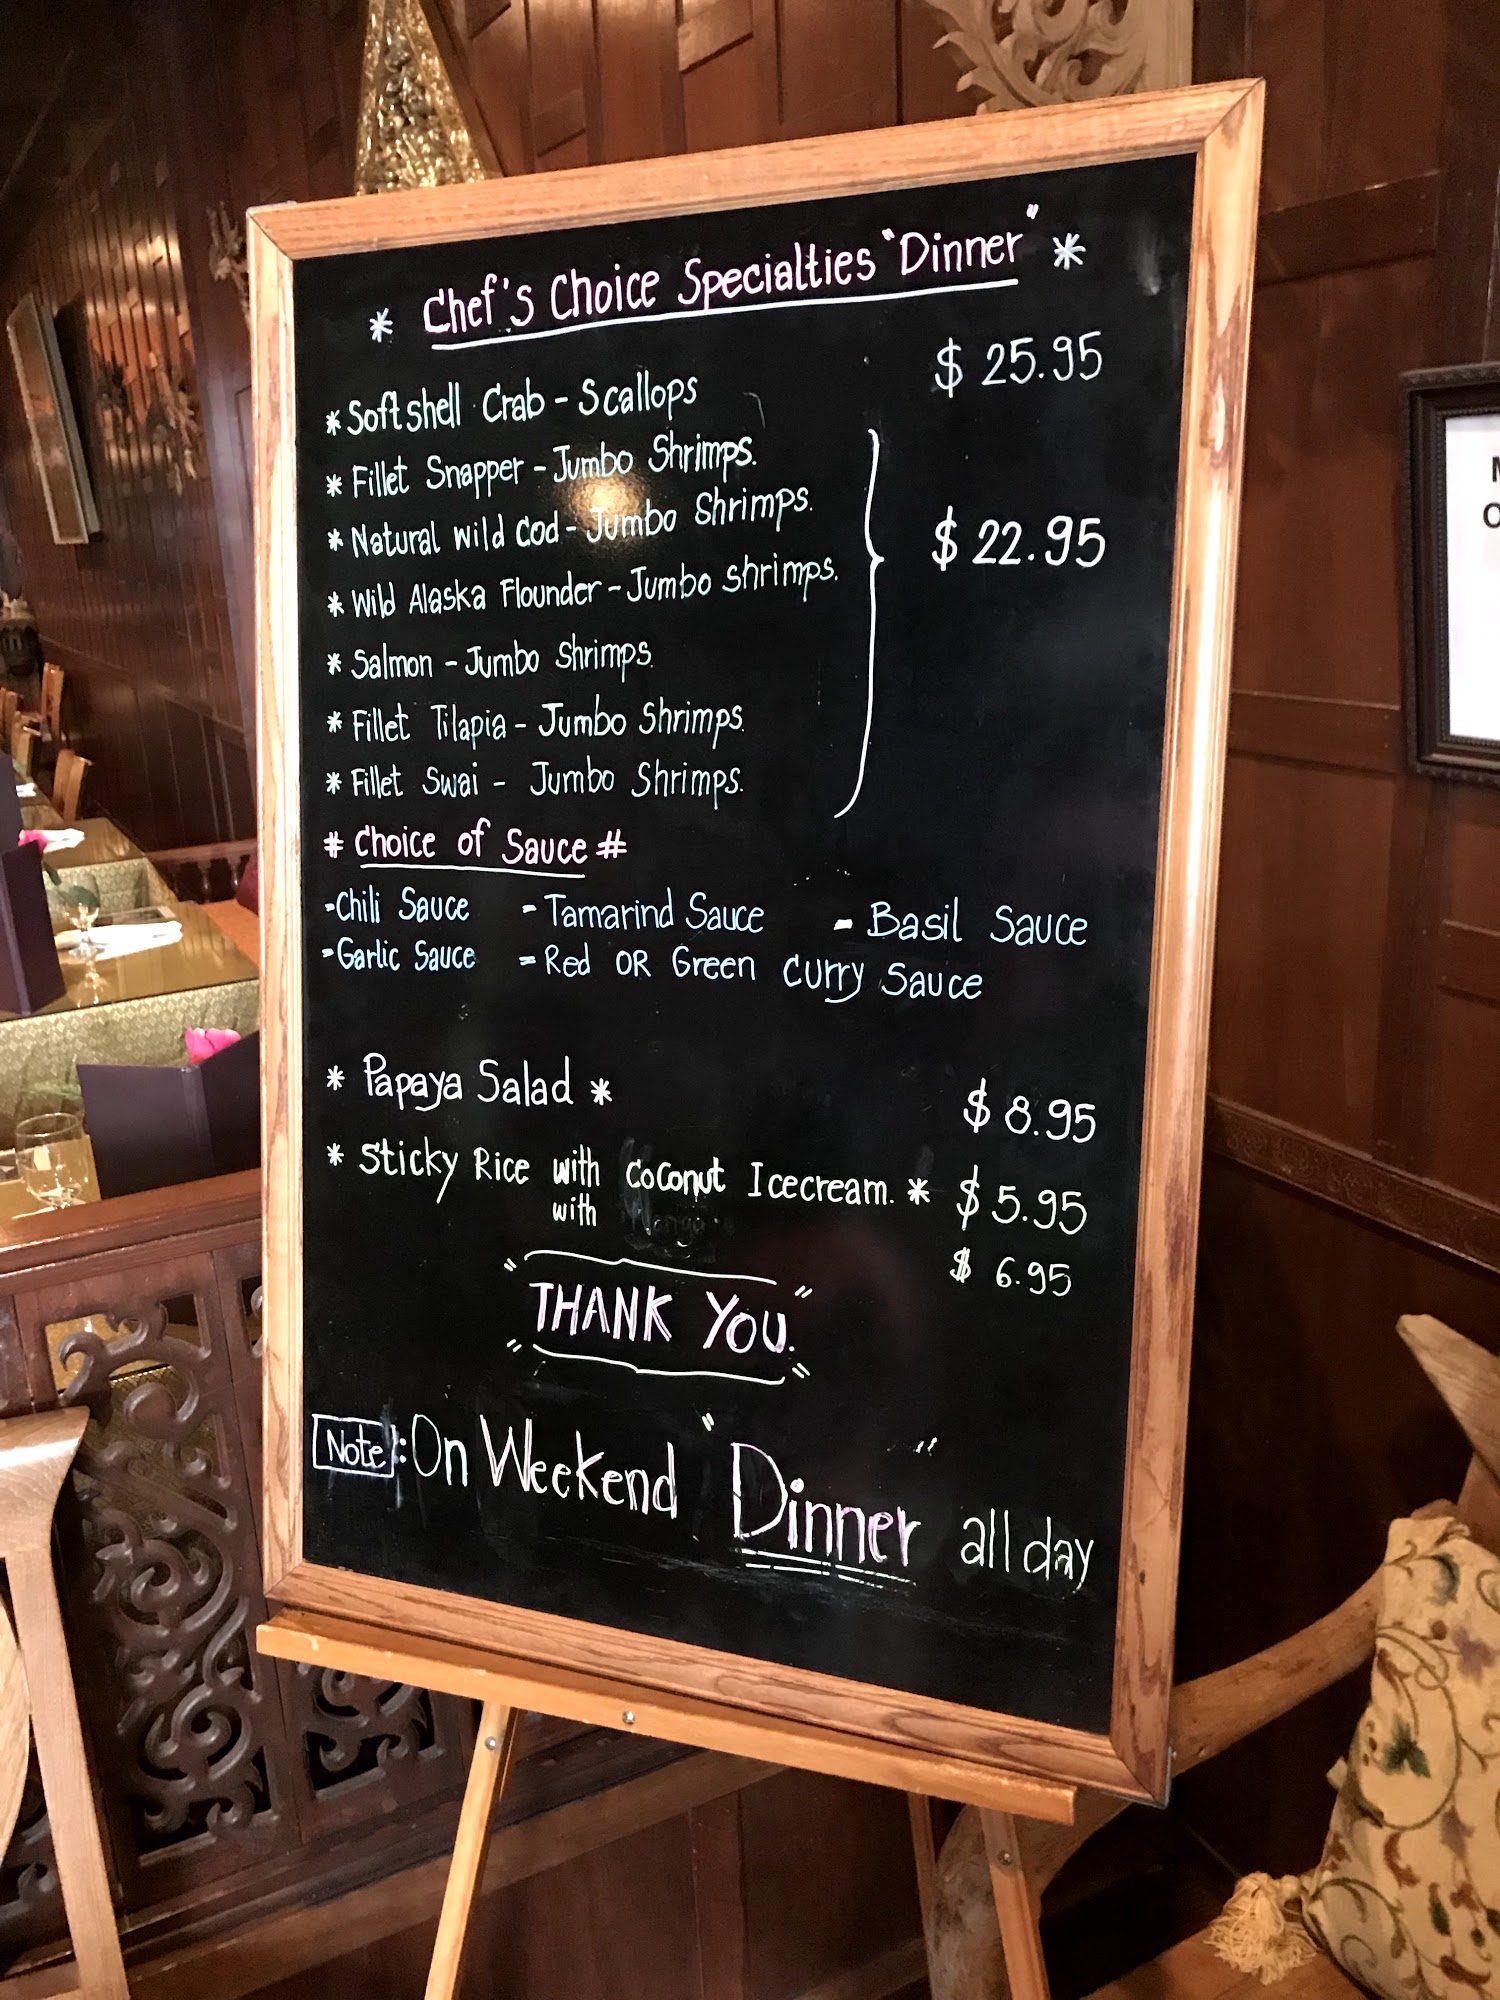 * Chef's Choice Specialties "Dinner" *
* Soft shell Crab - Scallops $ 25.95
* Fillet Snapper - Jumbo Shrimps.
* Natural Wild Cod - Jumbo Shrimps.
$ 22.95
* Wild Alaska Flounder - Jumbo Shrimps.
* Salmon - Jumbo Shrimps.
* Fillet Tilapia - Jumbo Shrimps.
* Fillet Swai - Jumbo Shrimps.
# Choice of Sauce #
- Chili Sauce - Tamarind Sauce - Basil Sauce
- Garlic Sauce - Red OR Green Curry Sauce
* Papaya Salad * $ 8.95
* Sticky Rice with Coconut Icecream. * $ 5.95
with $ 6.95
"THANK YOU."
Note: On Weekend "Dinner" all day